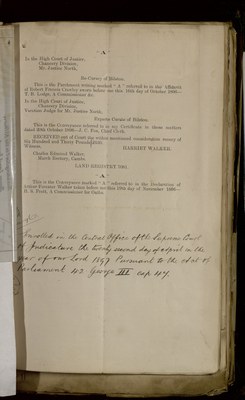 "A"
In the High Court of Justice,
Chancery Division,
Mr. Justice North.
Re Curacy of Bilston.
This is the Parchment writing marked "A" referred to in the Affidavit
of Robert Francis Crawley sworn before me this 16th day of October 1896—
T. P. Lodge, A Commissioner &c.
In the High Court of Justice,
Chancery Division,
Vacation Judge for Mr. Justice North.
Exparte Curate of Bilston.
This is the Conveyance referred to in my Certificate in these matters
dated 30th October 1896.—J. C. Fox, Chief Clerk.
RECEIVED out of Court the within mentioned consideration money of
Six Hundred and Thirty Pounds
Witness, HARRIET WALKER.
Charles Edmund Walker
March Rectory, Cambs.
LAND REGISTRY
"A"
This is the Conveyance marked "A" referred to in the Declaration of
Arthur Freeman Walker taken before me this 19th day of November 1896—
A Commissioner for Oaths
Enrolled in the Central Office of the Supreme Court
of Judicature the twenty second day of April in the
year of our Lord 1897 Pursuant to the Act of
Parliament 43 George III cap 47.